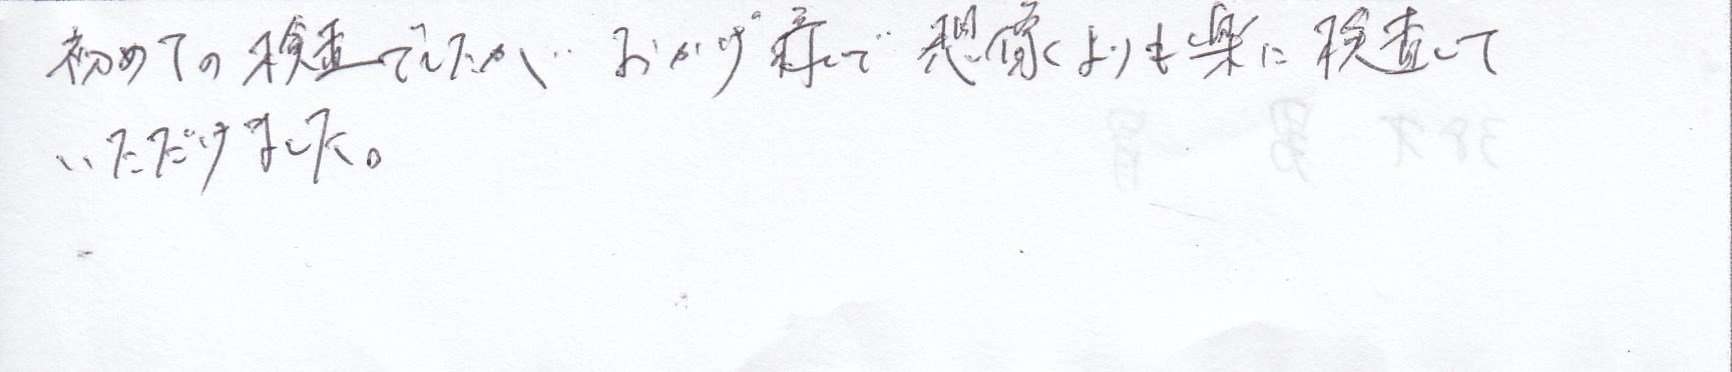 初めての検査でしたが、おかげ様で想像よりも楽に検査して
いただけました。
38才 男 胃